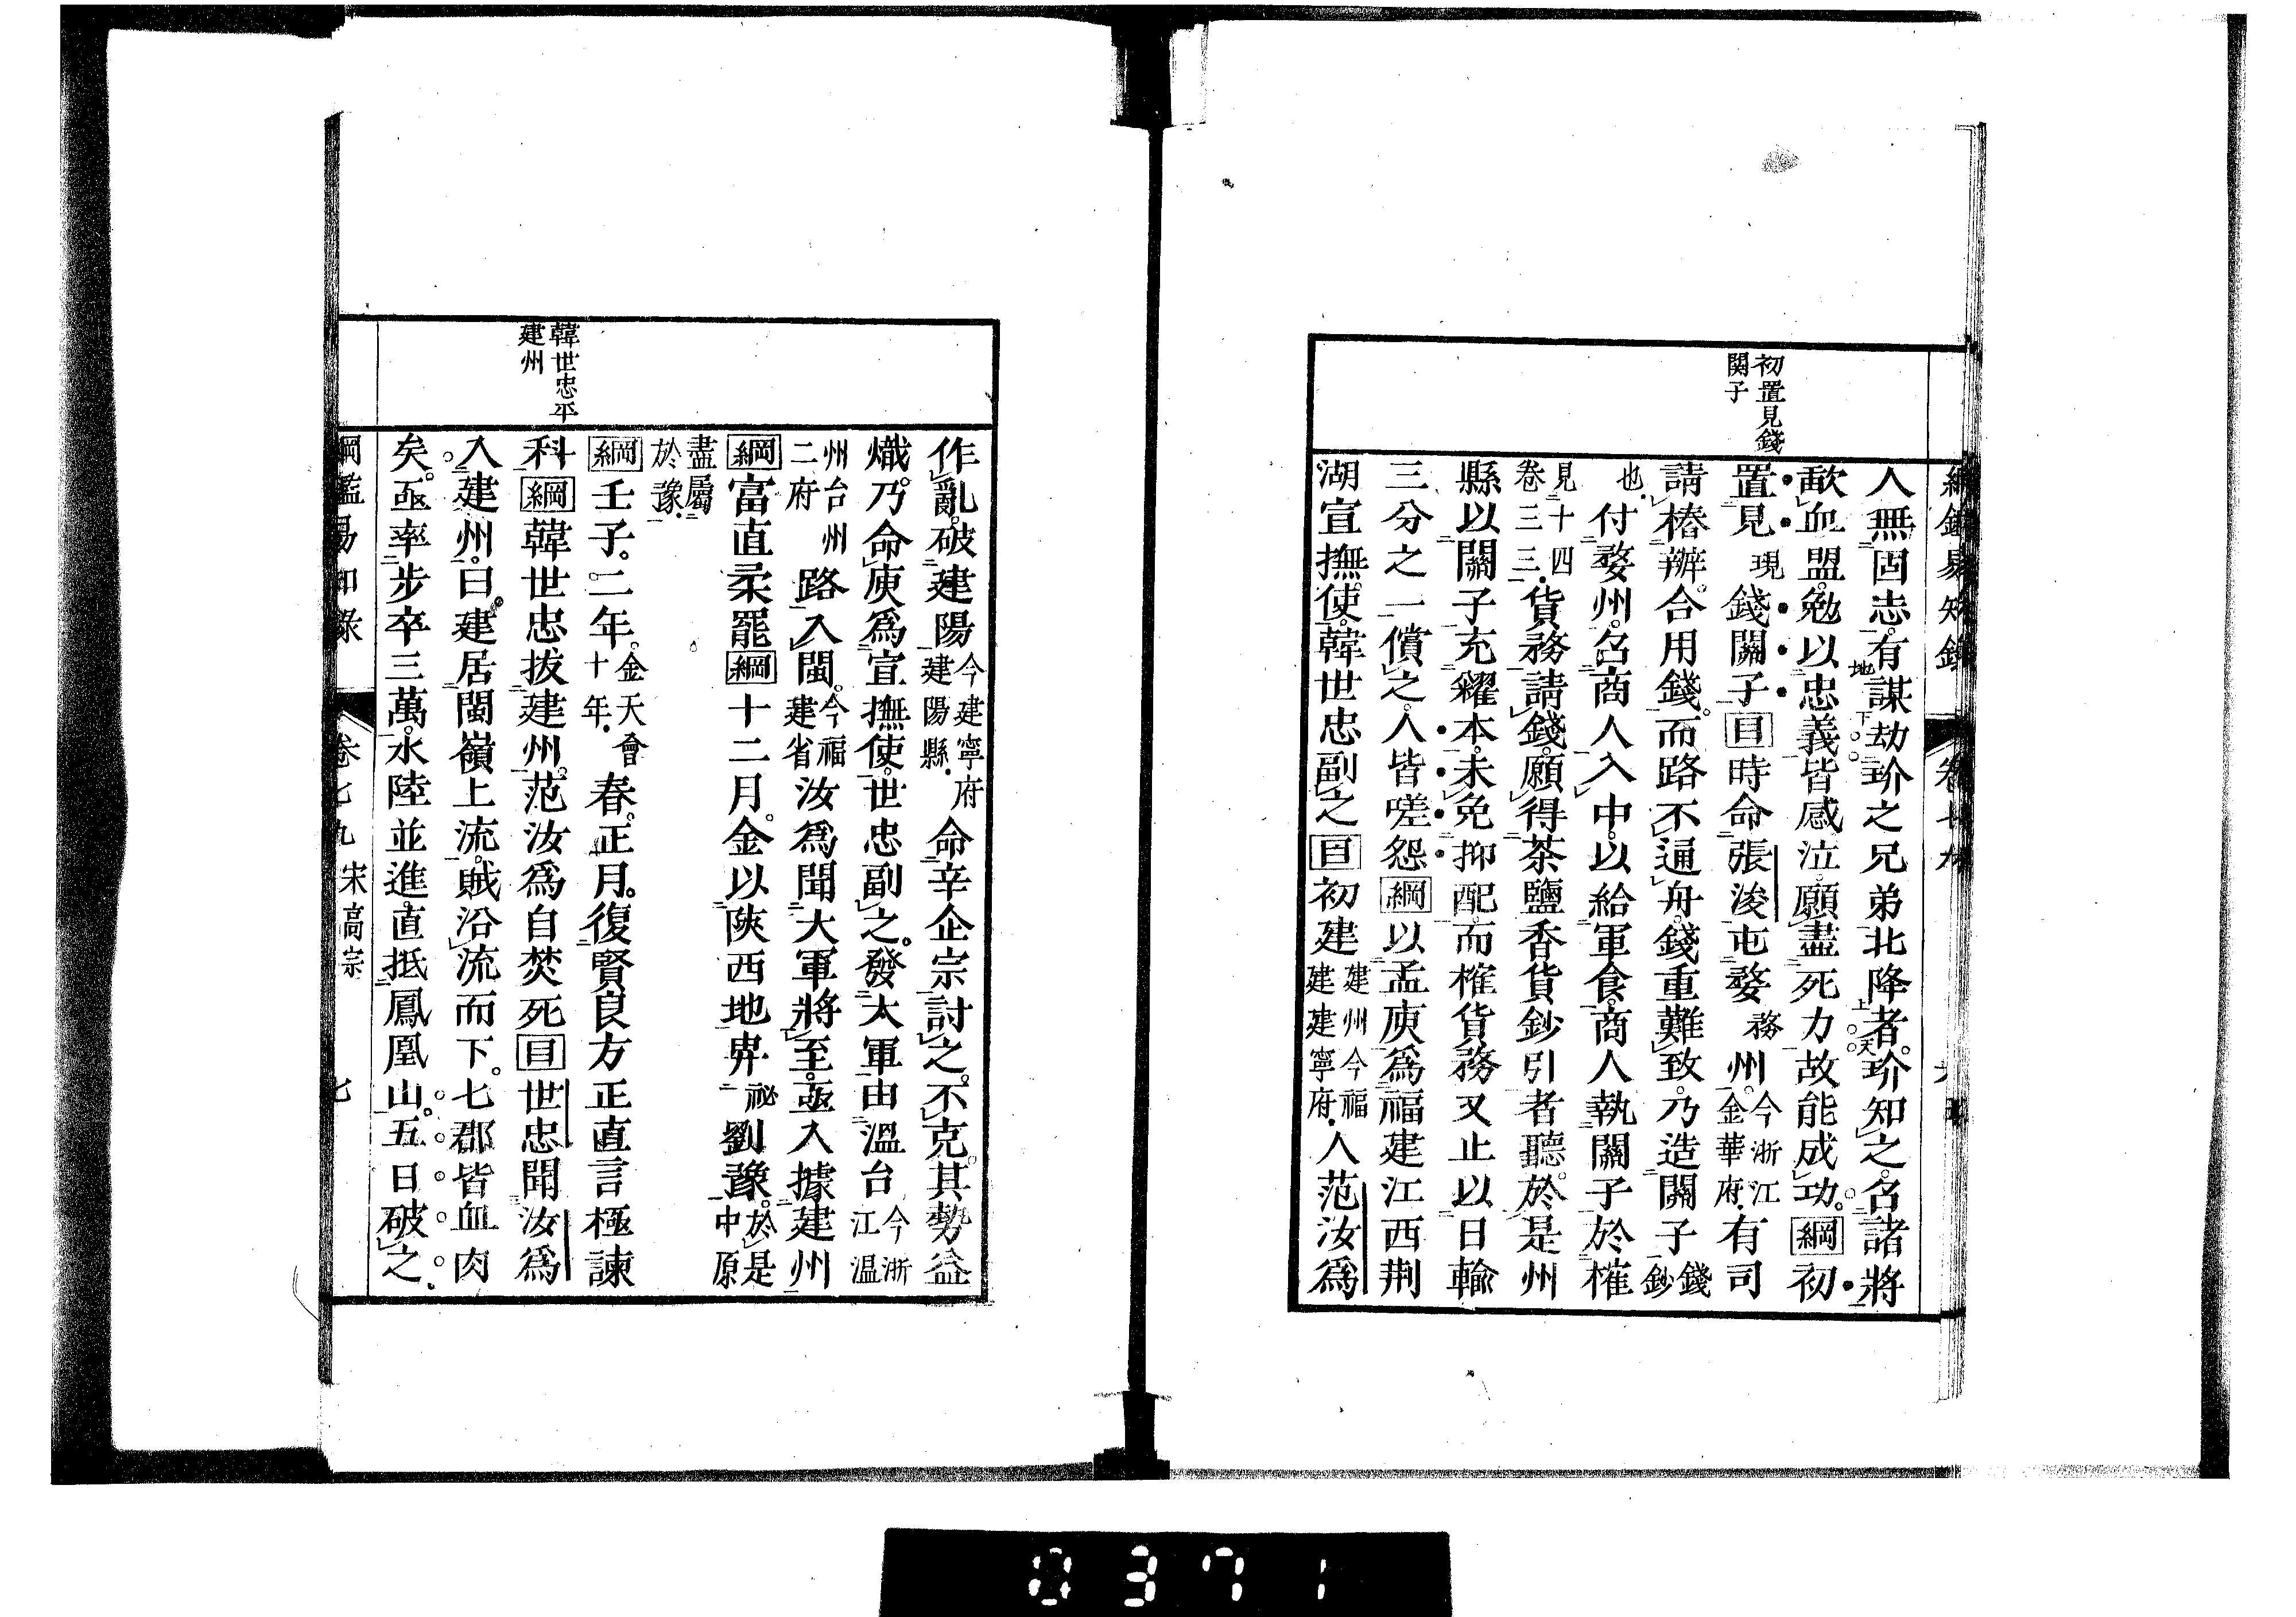 綱鑑易知錄 卷七九
初置見錢
関子
人無固志。有謀劫玠之兄弟北降者。玠知之。召諸將
歃血盟。勉以忠義。皆感泣。願盡死力。故能成功。綱初
置見現錢關子目時命張浚屯婺務州。今浙江金華府。有司
請樁辦。合用錢。而路不通舟。錢重難致。乃造關子錢鈔
也。付婺州。召商人入中。以給軍食。商人執關子於榷
見十四卷三三。貨務請錢。願得茶鹽香貨鈔引者聽。於是州
縣以關子充糴本。未免抑配。而榷貨務又止以日輸
三分之一償之。人皆嗟怨。綱以孟庾爲福建江西荆
湖宣撫使。韓世忠副之目初建建州今福建建寧府。人范汝爲
作亂。破建陽今建寧府建陽縣。命辛企宗討之。不克。其勢益
熾。乃命庾爲宣撫使。世忠副之。發大軍由溫台今浙江溫
州台州二府州路入閩。今福建省汝爲聞大軍將至。亟入據建州
綱富直柔罷綱十二月。金以陝西地畀祕劉豫。於是中原
盡屬於豫。
綱壬子。二年。金天會十年。春。正月。復賢良方正直言極諫
科綱韓世忠拔建州。范汝爲自焚死目世忠聞汝爲
入建州。曰。建居閩嶺上流。賊沿流而下。七郡皆血肉
矣。亟率步卒三萬。水陸並進。直抵鳳凰山。五日破之。
韓世忠平
建州
綱鑑易知錄 卷七九 宋高宗 七
0371